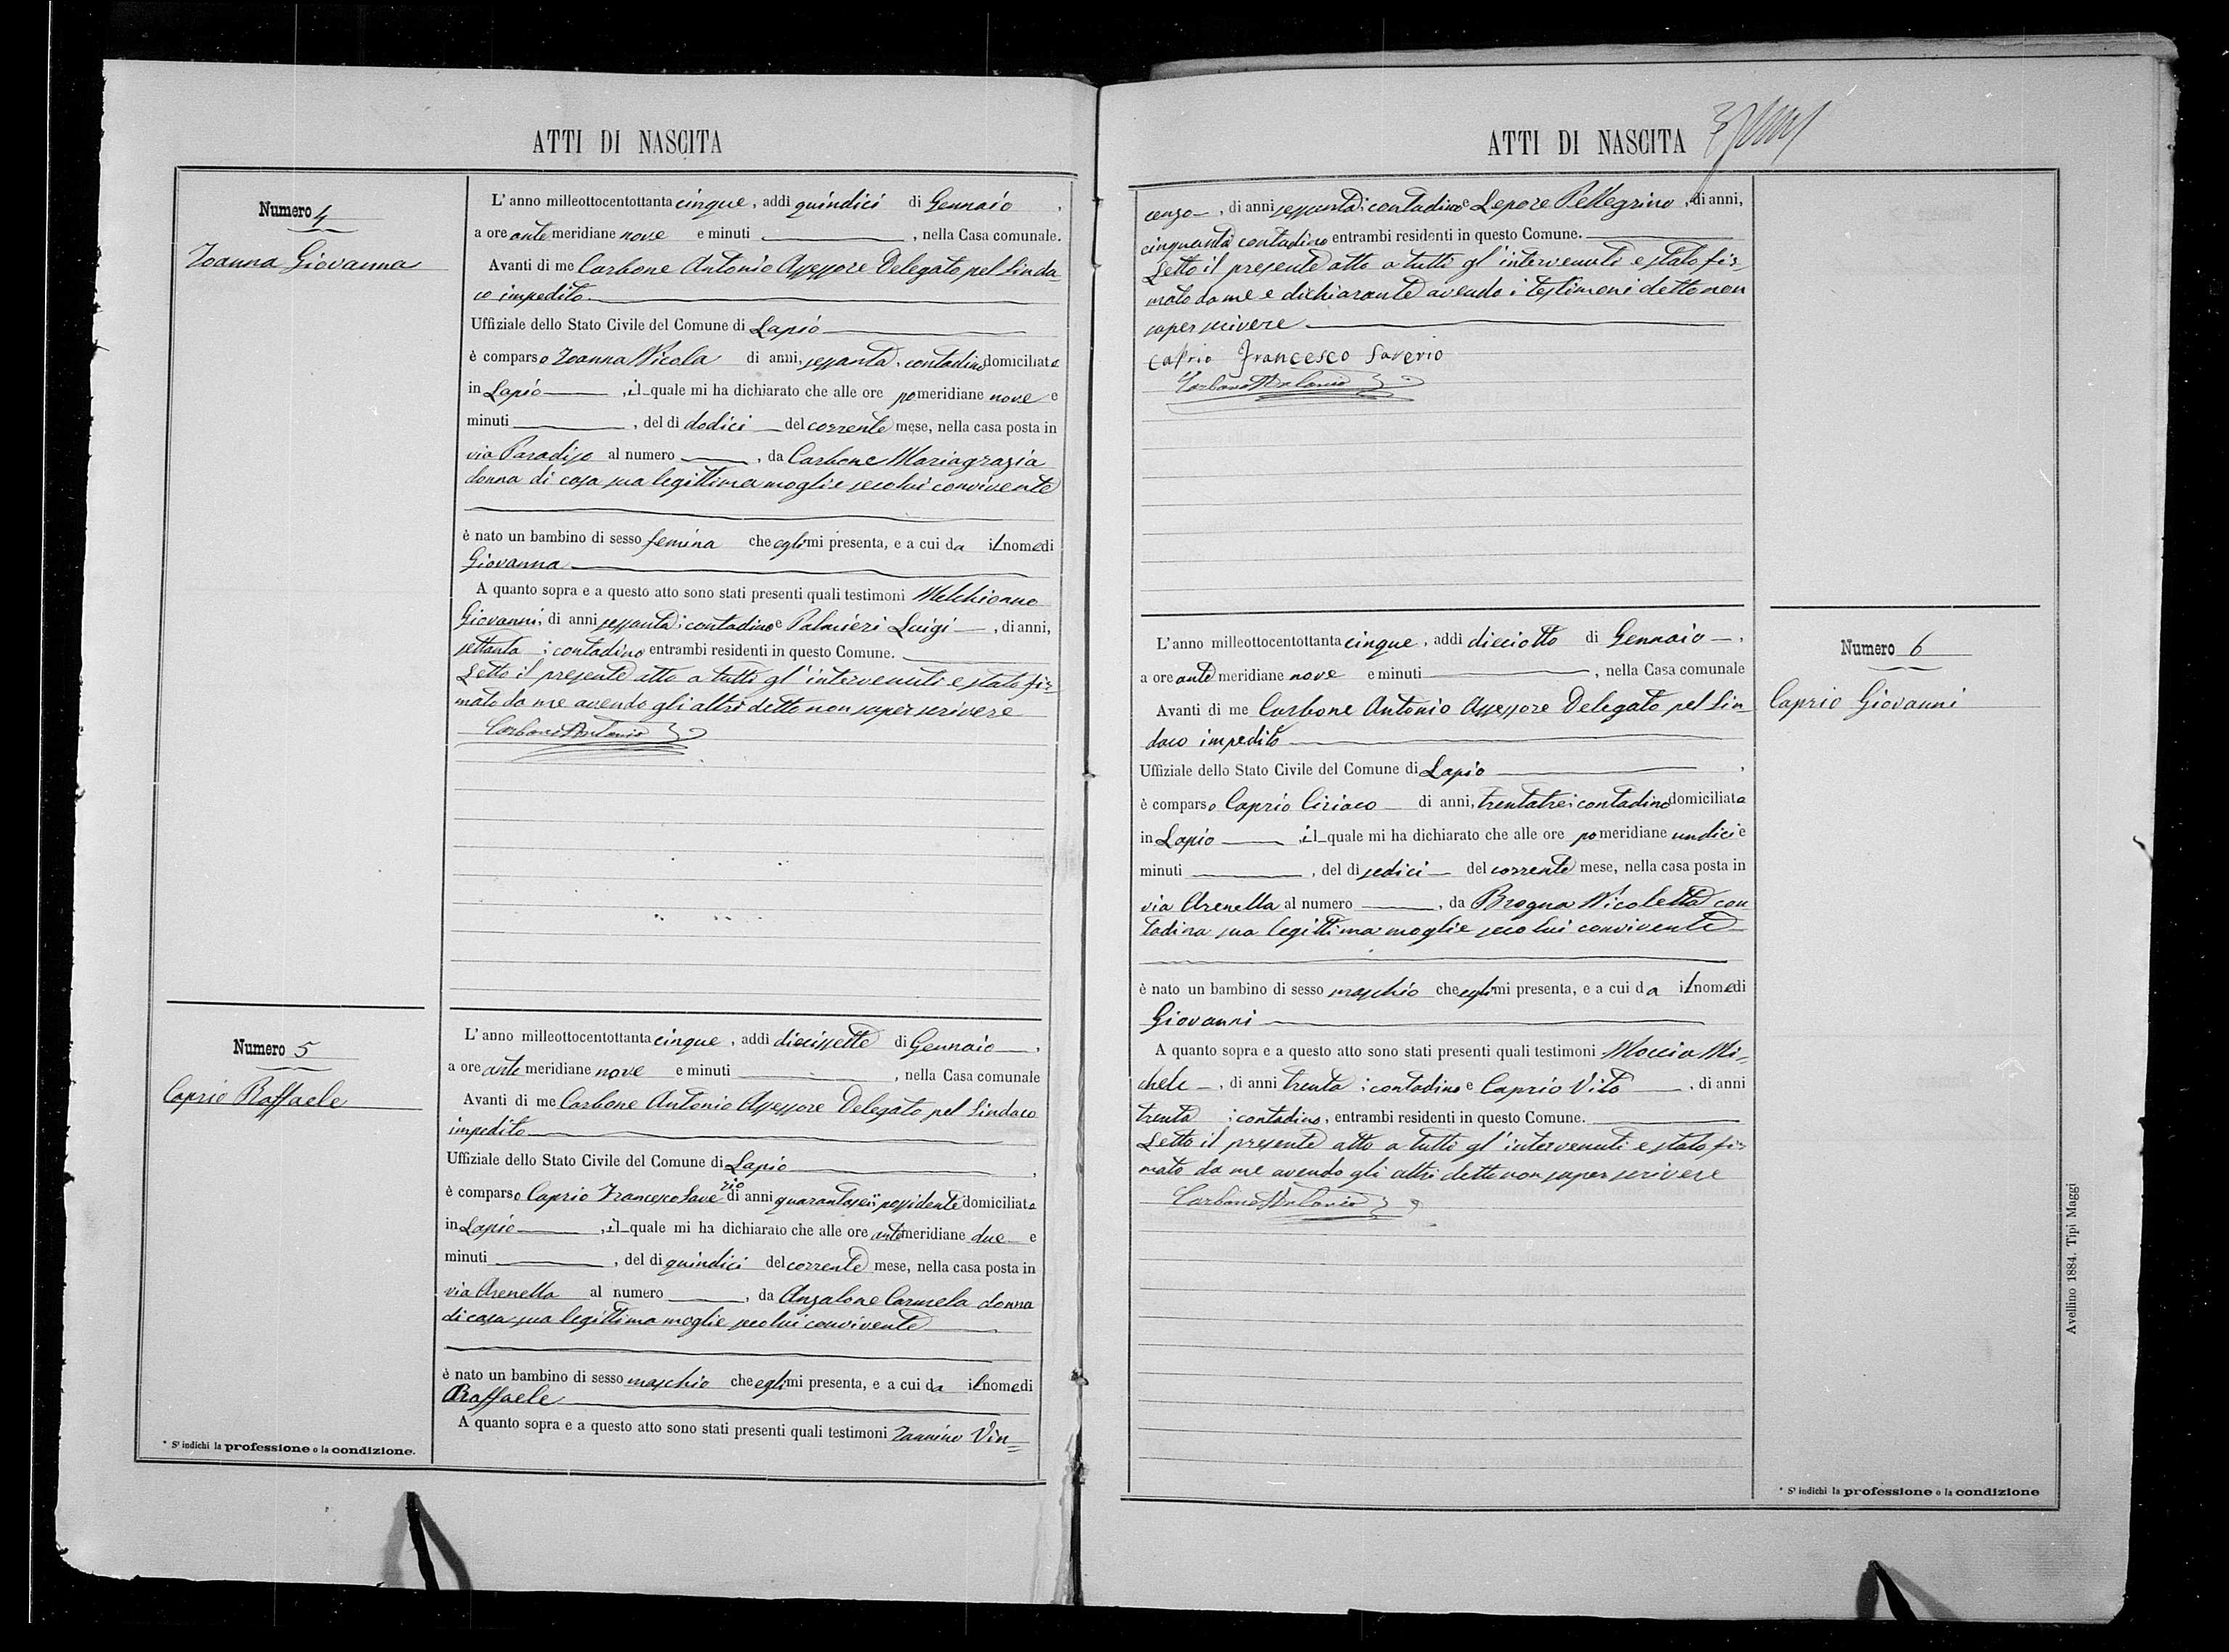 ATTI DI NASCITA
Numero 4
Zoanna Giovanna
L'anno milleottocentottanta cinque, addì quindici di Gennaio,
a ore ante meridiane nove e minuti , nella Casa comunale.
Avanti di me Carbone Antonio Assessore Delegato pel Sinda-
co impedito
Uffiziale dello Stato Civile del Comune di Lapio
è comparso Zoanna Nicola di anni, sessanta, contadino domiciliato
in Lapio , il quale mi ha dichiarato che alle ore pomeridiane nove e
minuti , del dì dodici del corrente mese, nella casa posta in
via Paradiso al numero , da Carbone Mariagrazia
donna di casa sua legittima moglie seco lui convivente
è nato un bambino di sesso femina che egli mi presenta, e a cui da il nome di
Giovanna
A quanto sopra e a questo atto sono stati presenti quali testimoni
Giovanni, di anni sessanta; contadino e Palmieri Luigi , di anni,
settanta ; contadino entrambi residenti in questo Comune.
Letto il presente atto a tutti gl'intervenuti e stato fir-
mato da me avendo gli altri detto non saper scrivere
Carbone Antonio
Numero 5
Caprio Raffaele
L'anno milleottocentottanta cinque, addì diecissette di Gennaio ,
a ore ante meridiane nove e minuti , nella Casa comunale
Avanti di me Carbone Antonio Assessore Delegato pel Sindaco
impedito
Uffiziale dello Stato Civile del Comune di Lapio ,
è comparso Caprio Francesco Saverio di anni quarantasei; possidente domiciliato
in Lapio , il quale mi ha dichiarato che alle ore antemeridiane due e
minuti , del dì quindici del corrente mese, nella casa posta in
via Arenella al numero , da Anzalone Carmela donna
di casa sua legittima moglie seco lui convivente
è nato un bambino di sesso maschio che egli mi presenta, e a cui da il nome di
Raffaele
A quanto sopra e a questo atto sono stati presenti quali testimoni Zannino Vin=
* S'indichi la professione o la condizione.
ATTI DI NASCITA
cenzo , di anni sessanta; contadino e Lepore Pellegrino, di anni,
cinquanta contadino entrambi residenti in questo Comune.
Letto il presente atto a tutti gl'intervenuti e stato fir-
mato da me e dichiarante avendo i testimoni detto non
saper scrivere
Caprio Francesco Saverio
Carbone Antonio
Numero 6
Caprio Giovanni
L'anno milleottocentottanta cinque, addì dieciotto di Gennaio ,
a ore ante meridiane nove e minuti , nella Casa comunale
Avanti di me Carbone Antonio Assessore Delegato pel Sin-
daco impedito
Uffiziale dello Stato Civile del Comune di Lapio ,
è comparso Caprio Ciriaco di anni, trentatre; contadino domiciliato
in Lapio , il quale mi ha dichiarato che alle ore pomeridiane undici e
minuti , del dì sedici del corrente mese, nella casa posta in
via Arenella al numero , da Brogna Nicoletta con
tadina sua legittima moglie seco lui convivente
è nato un bambino di sesso maschio che egli mi presenta, e a cui da il nome di
Giovanni
A quanto sopra e a questo atto sono stati presenti quali testimoni Moccia Mi-
chele , di anni trenta ; contadino e Caprio Vito , di anni
trenta ; contadino, entrambi residenti in questo Comune.
Letto il presente atto a tutti gl'intervenuti e stato fir-
mato da me avendo gli altri detto non saper scrivere
Carbone Antonio
* S'indichi la professione o la condizione
Avellino 1884. Tipi Maggi